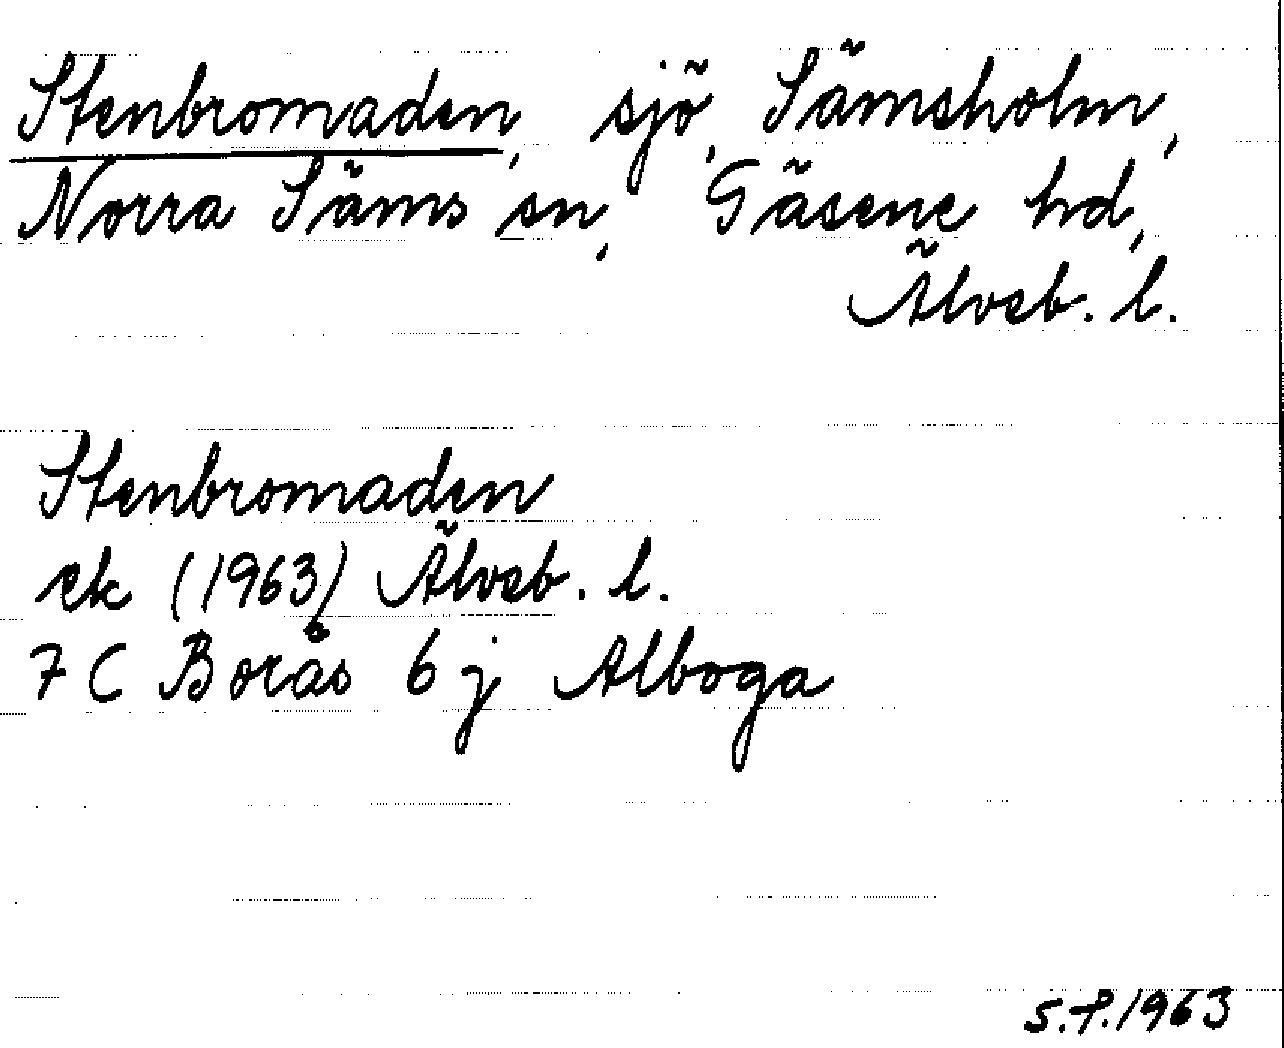 Stenbromaden, sjö, Sämsholm,
Norra Säms sn, Gäsene hd,
Älvsb. l.
Stenbromaden
ek (1963) Älvsb. l.
7 C Borås 6 j Alboga
S.P. 1963